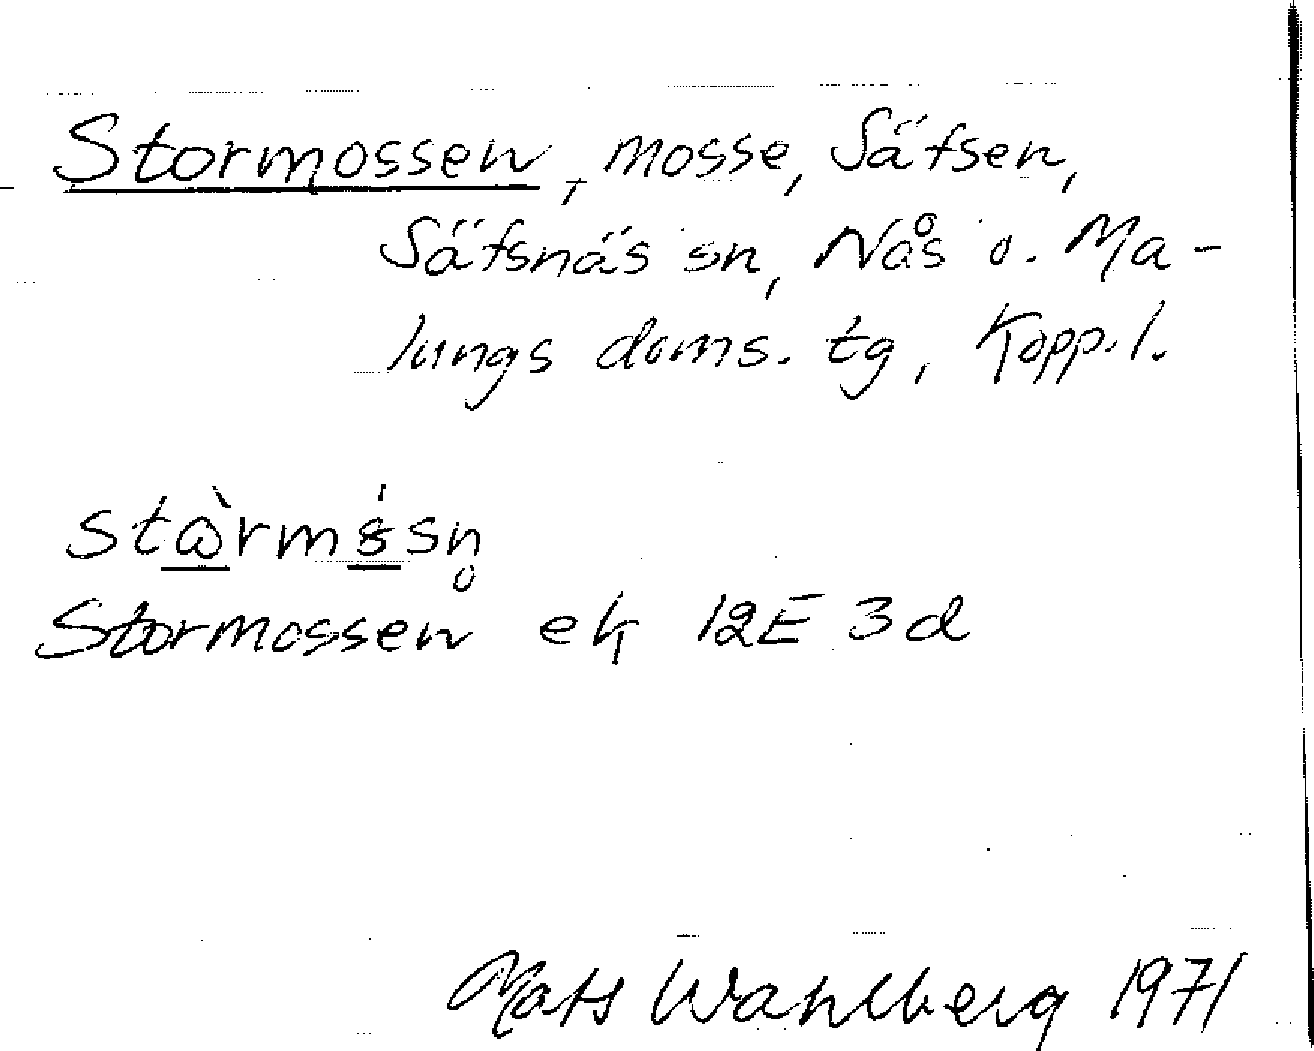 Stormossen, mosse, Säfsen,
Säfsnäs sn, Nås o. Ma-
lungs doms. tg, Kopp. l.
Stormossen ek 12E 3d
Mats Wahlberg 1971